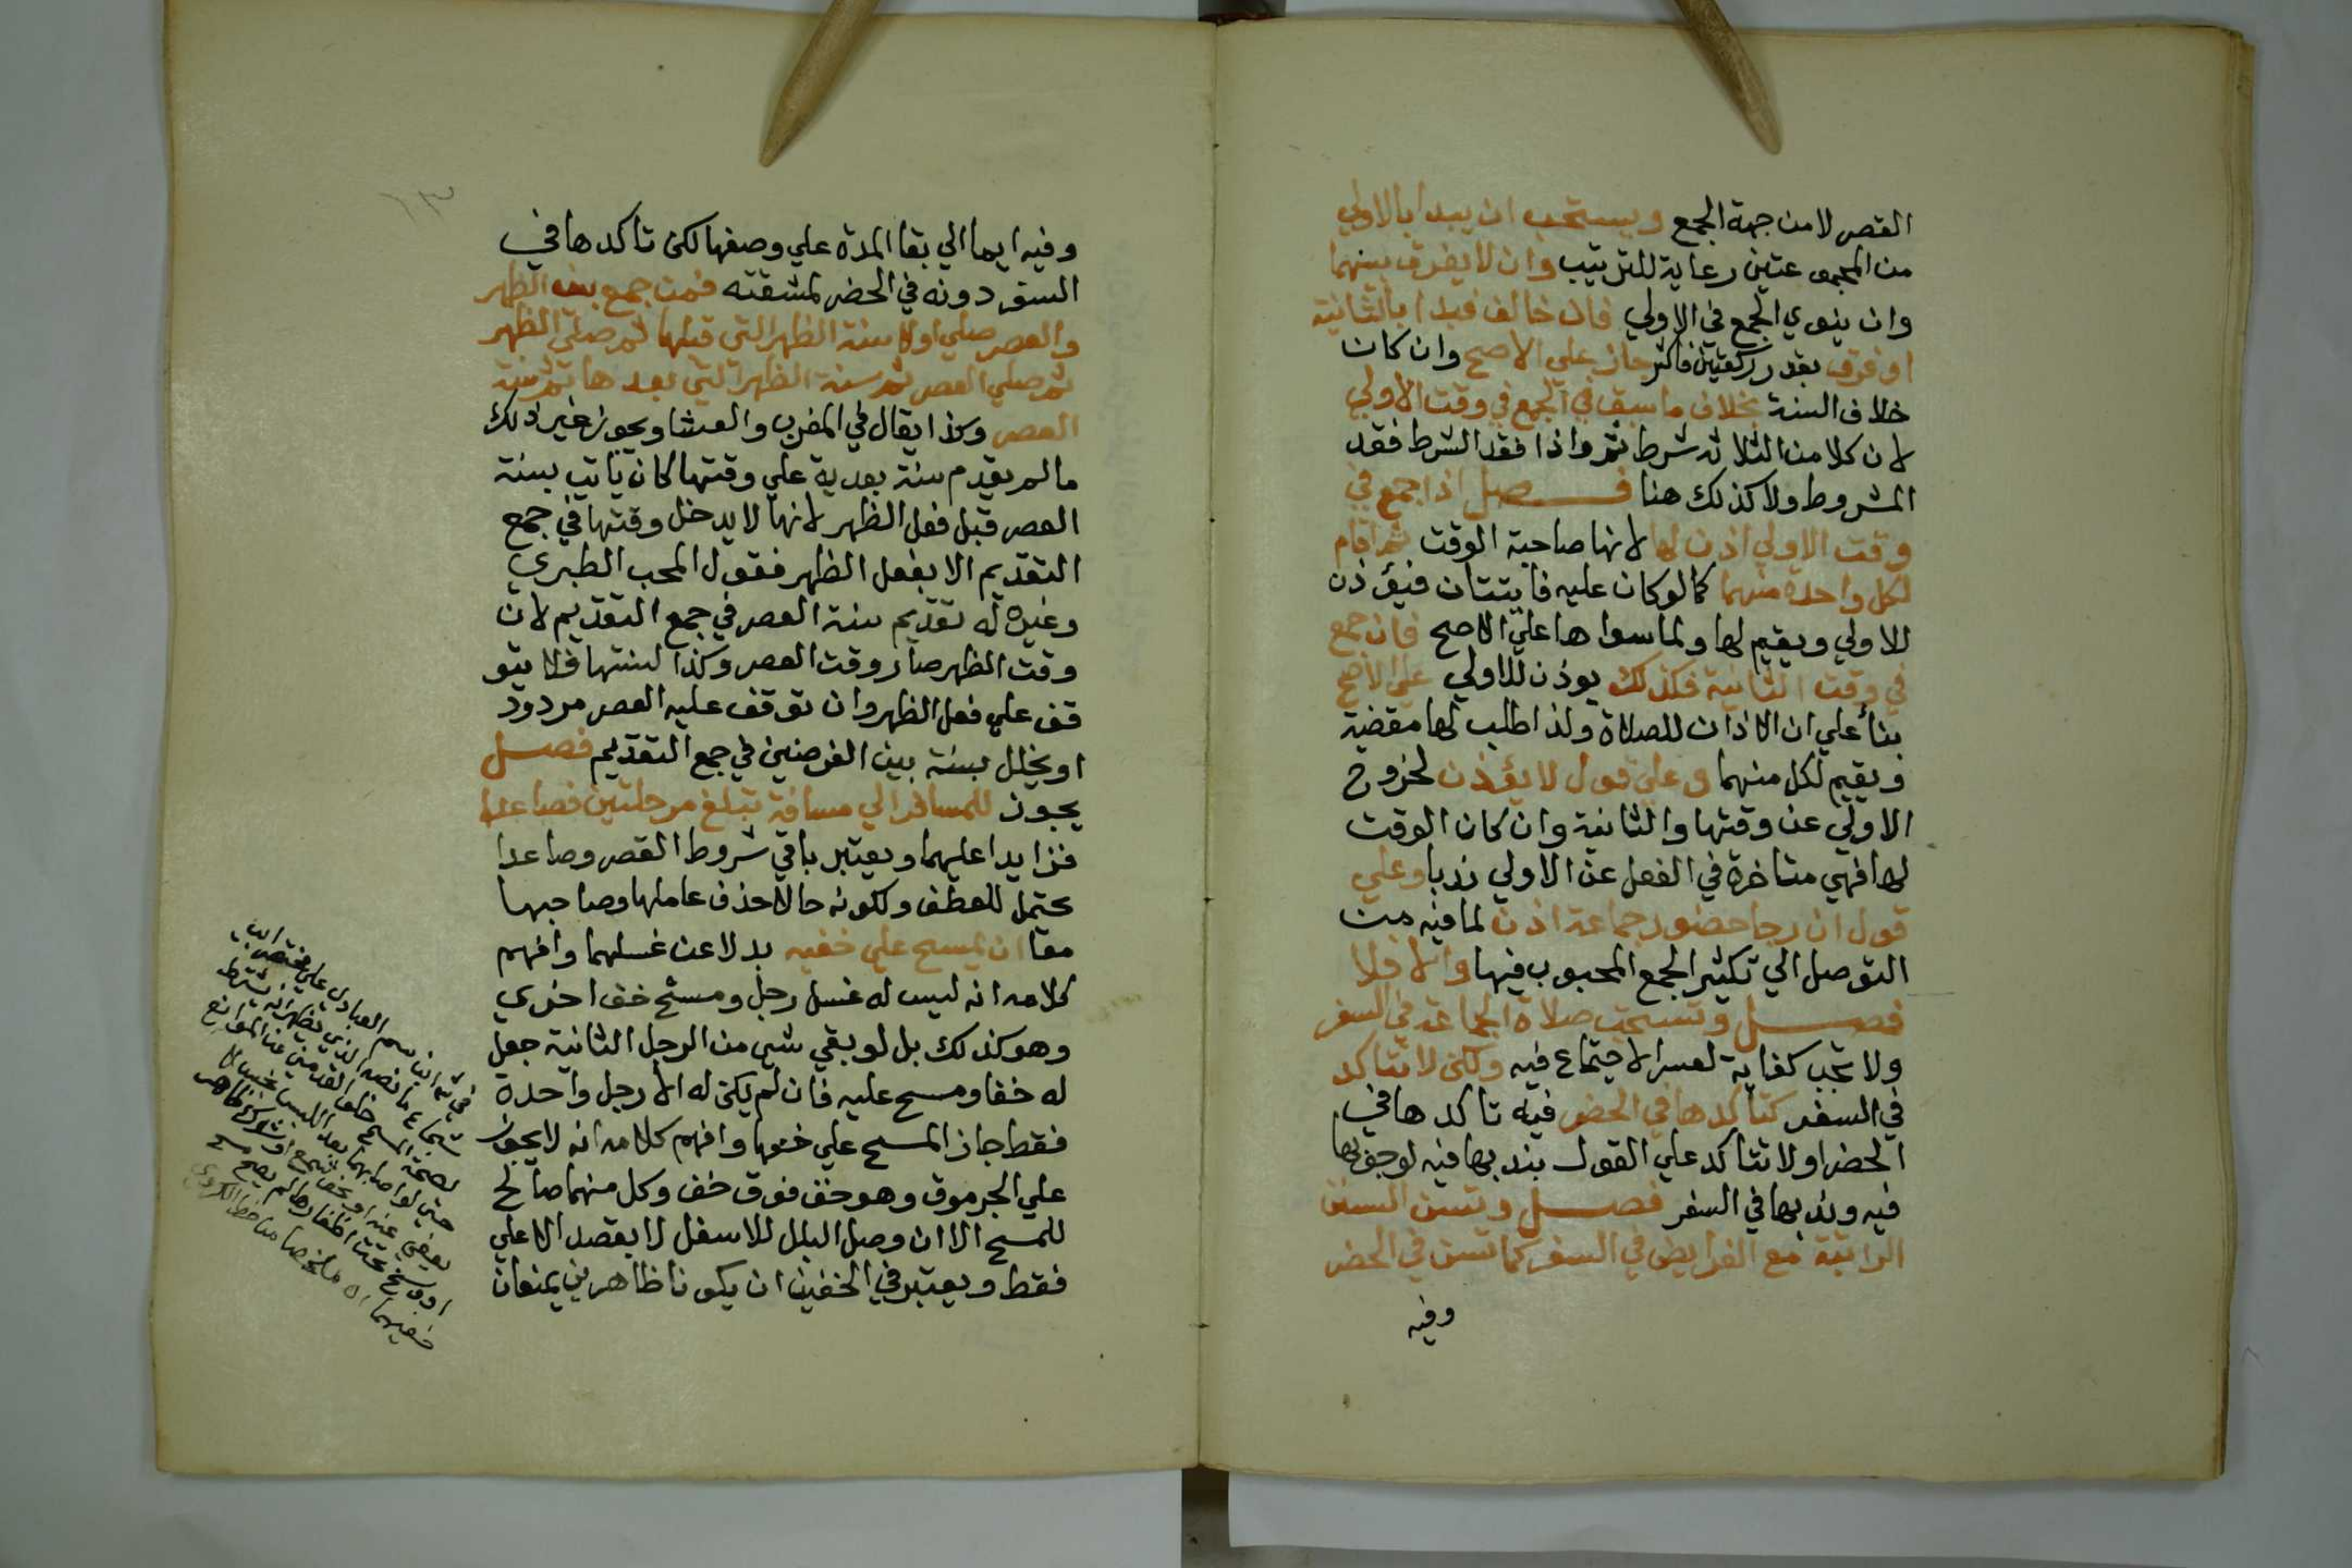 القصر لا من جهة الجمع ويستحب ان يبدا بالاولي
من المجموعتين رعاية للترتيب وان لا يفرق بينهما
وان ينوي الجمع في الاولي فان خالف فبدا بالثانية
او فرق بقدر ركعتين فاكثر جاز علي الاصح وان كان
خلاف السنة بخلاف ما سبق في الجمع في وقت الاولي
لان كلا من الثلاثه شرط ثم واذا فقد الشرط فقد
المشروط ولا كذلك هنا فصل اذا جمع في
وقت الاولي اذن لها لانها صاحبة الوقت ثم اقام
لكل واحدة منهما كما لو كان عليه فايتتان فيؤذن
للاولي ويقيم لها ولما سواها علي الاصح فان جمع
في وقت الثانية فكذلك يوذن للاولي علي الاصح
بناء علي ان الاذان للصلاة ولذا طلب لها مقضية
ويقيم لكل منهما وعلي قول لا يؤذن لخروج
الاولي عن وقتها والثانية وان كان الوقت
لها فهي متاخرة في الفعل عن الاولي ندبا وعلي
قول ان رجا حضور جماعة اذن لما فيه من
التوصل الي تكثير الجمع المحبوب فيها والا فلا
فصل وتستحب صلاة الجماعة في السفر
ولا تجب كفاية لعسر الاجتماع فيه ولكن لا تتاكد
في السفر كتاكدها في الحضر فيه تاكدها في
الحضر او لا تتاكد علي القول بندبها فيه لوجوبها
فيه وندبها في السفر فصل وتسن السنن
الراتبة مع الفرايض في السفر كما تسن في الحضر
وفيه
وفيه ايما الي بقا المدة علي وصفها لكن تاكدها في
السفر دونه في الحضر لمشقته فمن جمع بين الظهر
والعصر صلي اولا سنة الظهر التي قبلها ثم صلي الظهر
ثم صلي العصر ثم سنة الظهر التي بعدها ثم سنة
العصر وكذا يقال في المغرب والعشا ويجوز غير ذلك
ما لم يقدم سنة بعدية علي وقتها كان ياتي بسنة
العصر قبل فعل الظهر لانها لا يدخل وقتها في جمع
التقديم الا بفعل الظهر فقول المحب الطبري
وغيره له تقديم سنة العصر في جمع التقديم لان
وقت الظهر صار وقت العصر وكذا لسنتها فلا يتو
قف علي فعل الظهر وان توقف عليه العصر مردود
او يخلل بسنة بين الفرضين في جمع التقديم فصل
يجوز للمسافر الي مسافة تبلغ مرحلتين فصاعدا
فزايدا عليهما ويعتبر باقي شروط القصر وصاعدا
يحتمل للعطف ولكونه حالا حذف عاملها وصاحبها
معا ان يمسح علي خفيه بدلا عن غسلهما وافهم
كلامه انه ليس له غسل رجل ومسح خف اخري
وهو كذلك بل لو بقي شي من الرجل الثانية جعل
له خفا ومسح عليه فان لم يكن له الا رجل واحدة
فقط جاز المسح علي خفها وافهم كلامه انه لا يجوز
علي الجرموق وهو خف فوق خف وكل منهما صالح
للمسح الا ان وصل البلل للاسفل لا بقصد الاعلي
فقط ويعتبر في الخفين ان يكونا ظاهرين يمنعان
في شرح ابن قاسم العبادي علي مختصر ابي
شجاع ما نصه الذي يظهر انه يشترط
لصحة المسح خلو القدمين عن الموانع
حتي لو اصابهما بعد اللبس نجس لا
يعفي عنه او نحو شمع او شوكة ظاهر
او وسخ تحت اظفارها لم يصح مسح
خفيهما اه ملخصا من خط الكردي